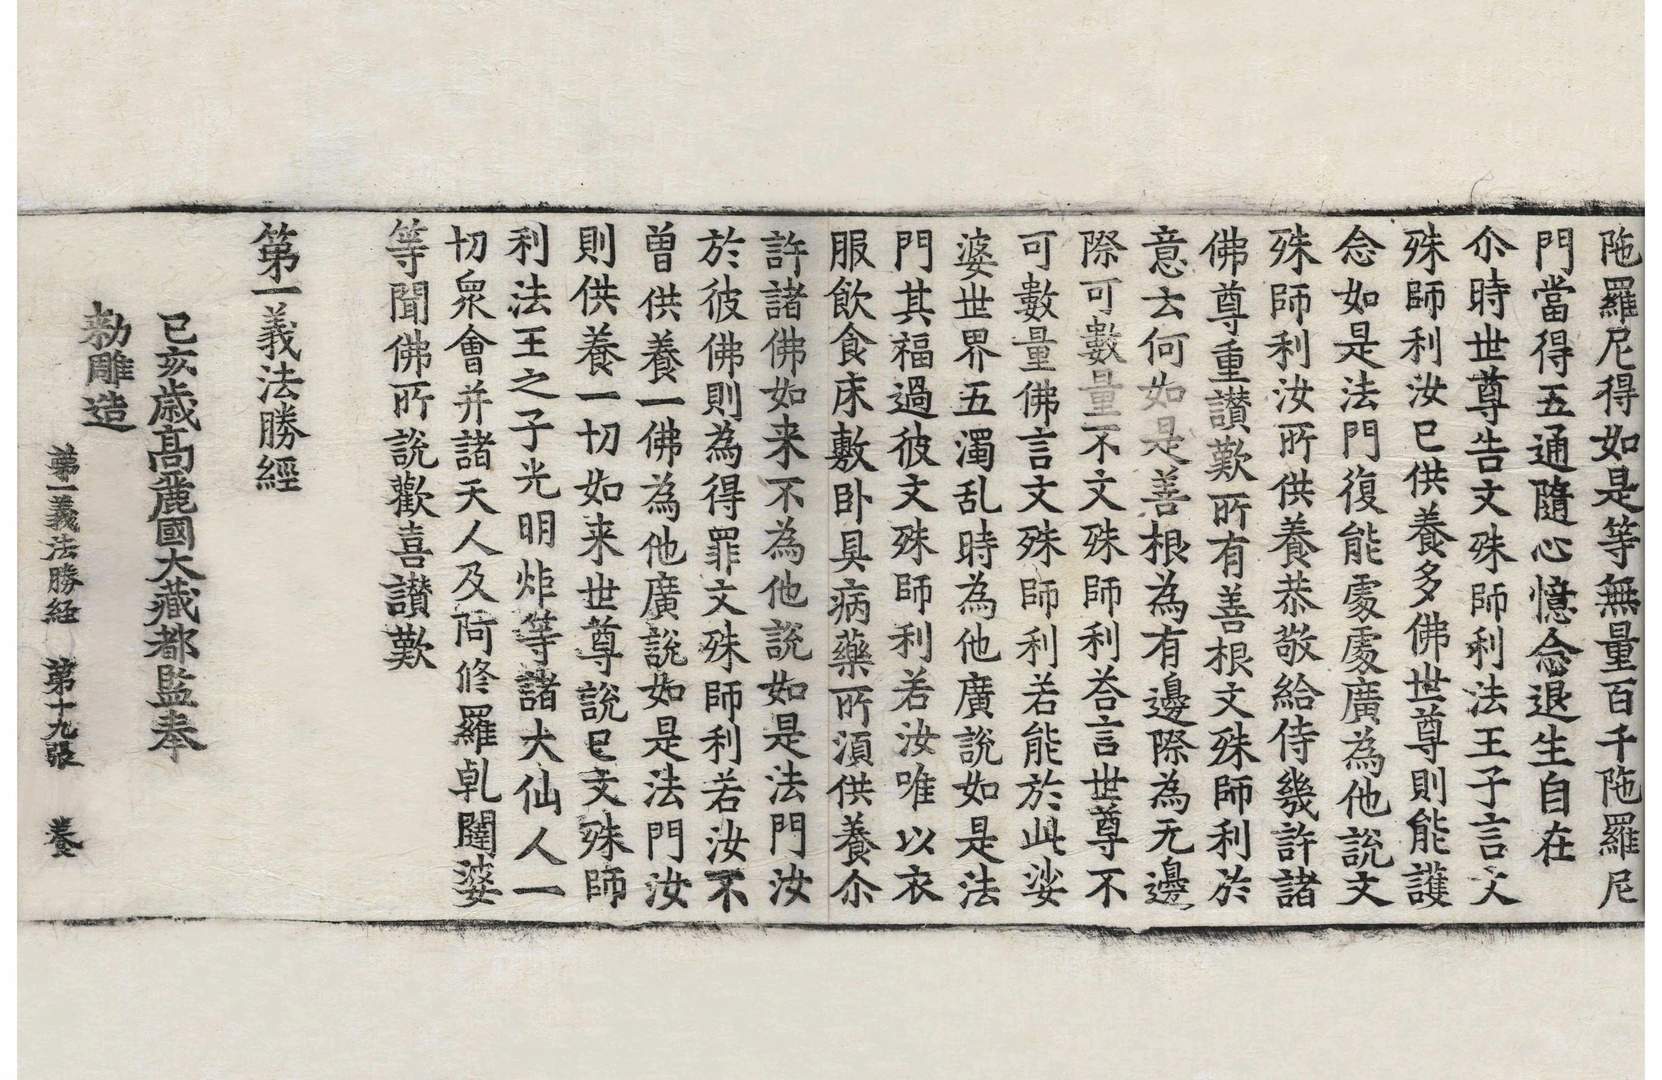 陁羅尼得如是等無量百千陁羅尼
門當得五通隨心憶念退生自在
尒時世尊告文殊師利法王子言文
殊師利汝已供養多佛世尊則能護
念如是法門復能處處廣為他說文
殊師利汝所供養恭敬給侍幾許諸
佛尊重讃歎所有善根文殊師利於
意去何如是善根為有邊際為无邊
際可數量不文殊師利荅言世尊不
可數量佛言文殊師利若能於此娑
婆世界五濁乱時為他廣說如是法
門其福過彼文殊師利若汝唯以衣
服飲食床敷卧具病藥所湏供養尒
許諸佛如来不為他說如是法門汝
於彼佛則為得罪文殊師利若汝不
曽供養一佛為他廣說如是法門汝
則供養一切如来世尊說已文殊師
利法王之子光明炬等諸大仙人一
切衆會并諸天人及阿修羅乹闥婆
等聞佛所說歡喜讃歎
第一義法勝經
己亥歲高麗國大藏都監奉
勑雕造
第一義法勝経 第十九張 養